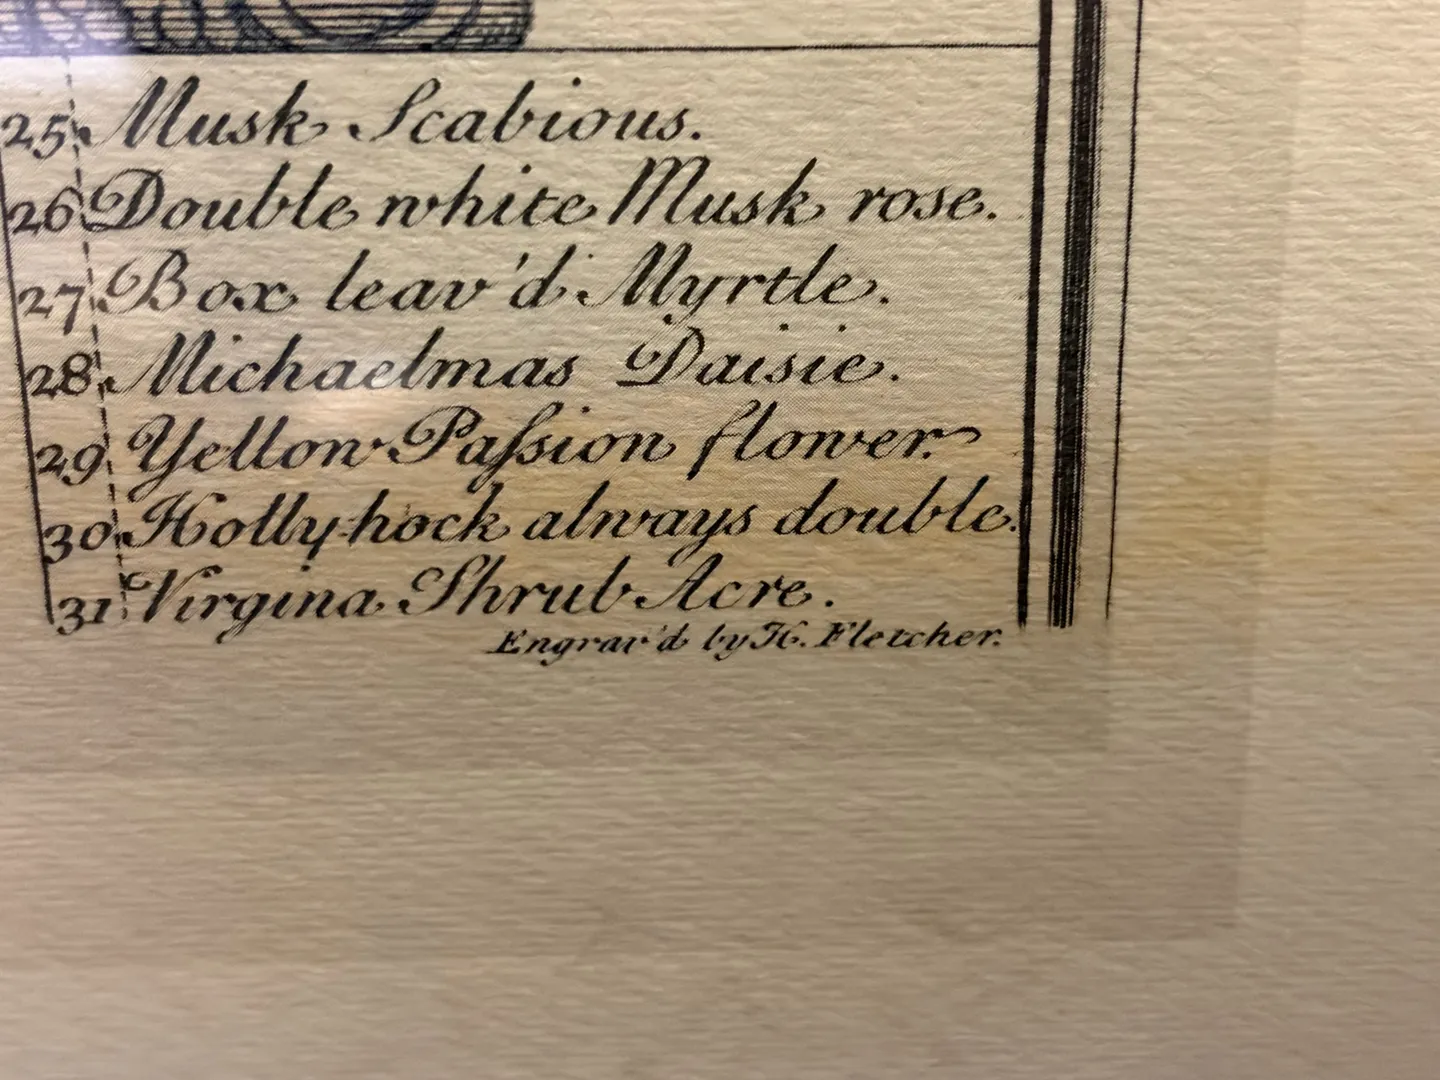 25. Musk Scabious.
26 Double white Musk rose.
27 Box leav'd Myrtle.
28. Michaelmas Daisie.
29 Yellow Paſsion flower.
30. Holly-hock always double.
31 Virgina Shrub Acre.
Engrav'd by H. Fletcher.